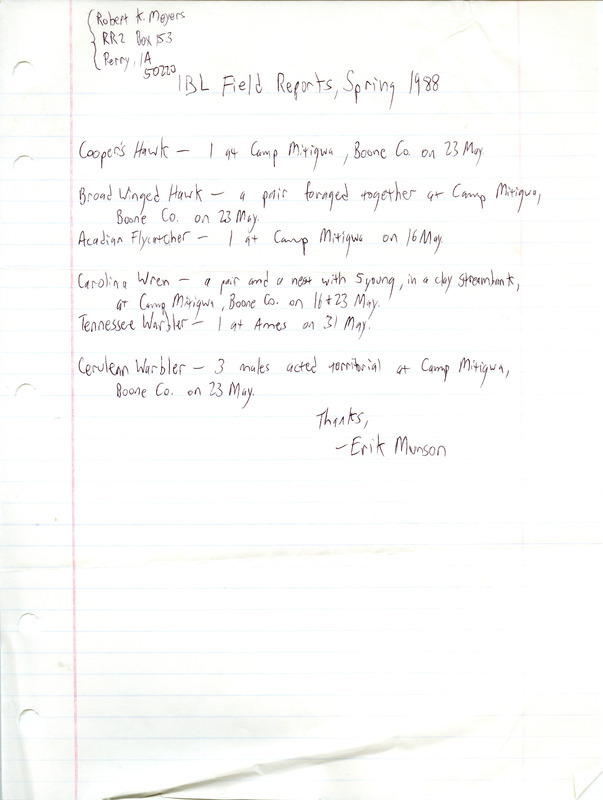 Robert K. Meyers
RR2 Box 153
Perry, IA
50220
IBL Field Reports, Spring 1988
Cooper's Hawk - 1 at Camp Mitigwa, Boone Co. on 23 May.
Broad Winged Hawk - a pair foraged together at Camp Mitigwa,
Boone Co. on 23 May.
Acadian Flycatcher - 1 at Camp Mitigwa on 16 May.
Carolina Wren - a pair and a nest with 5 young, in a clay streambank,
at Camp Mitigwa, Boone Co. on 16 + 23 May.
Tennessee Warbler - 1 at Ames on 31 May.
Cerulean Warbler - 3 males acted territorial at Camp Mitigwa,
Boone Co. on 23 May.
Thanks,
- Erik Munson